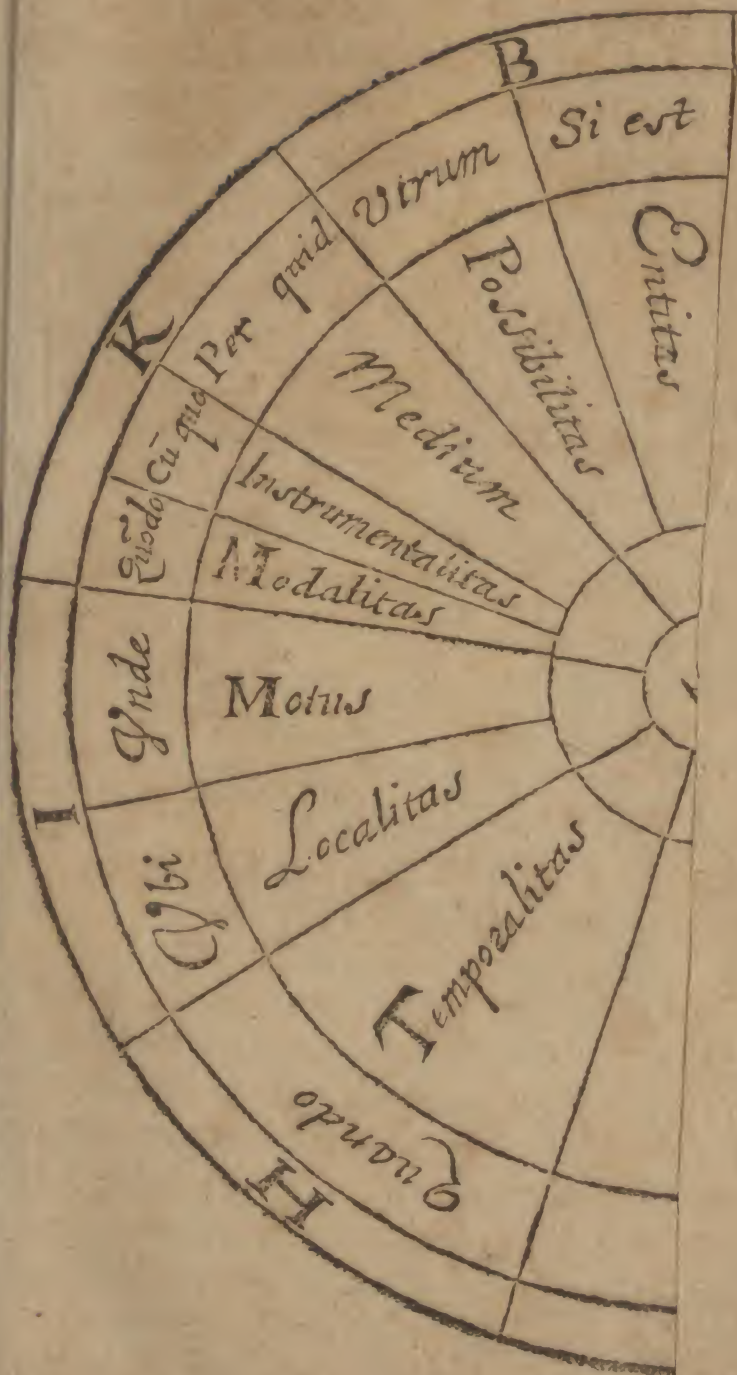 B
Si est
Utrum
Entitas
Possibilitas
K
Per quid
Medium
Cū quo
Instrumentalitas
Modalitas
I
Vnde
Motus
Vbi
Localitas
H
Quando
Temporalitas